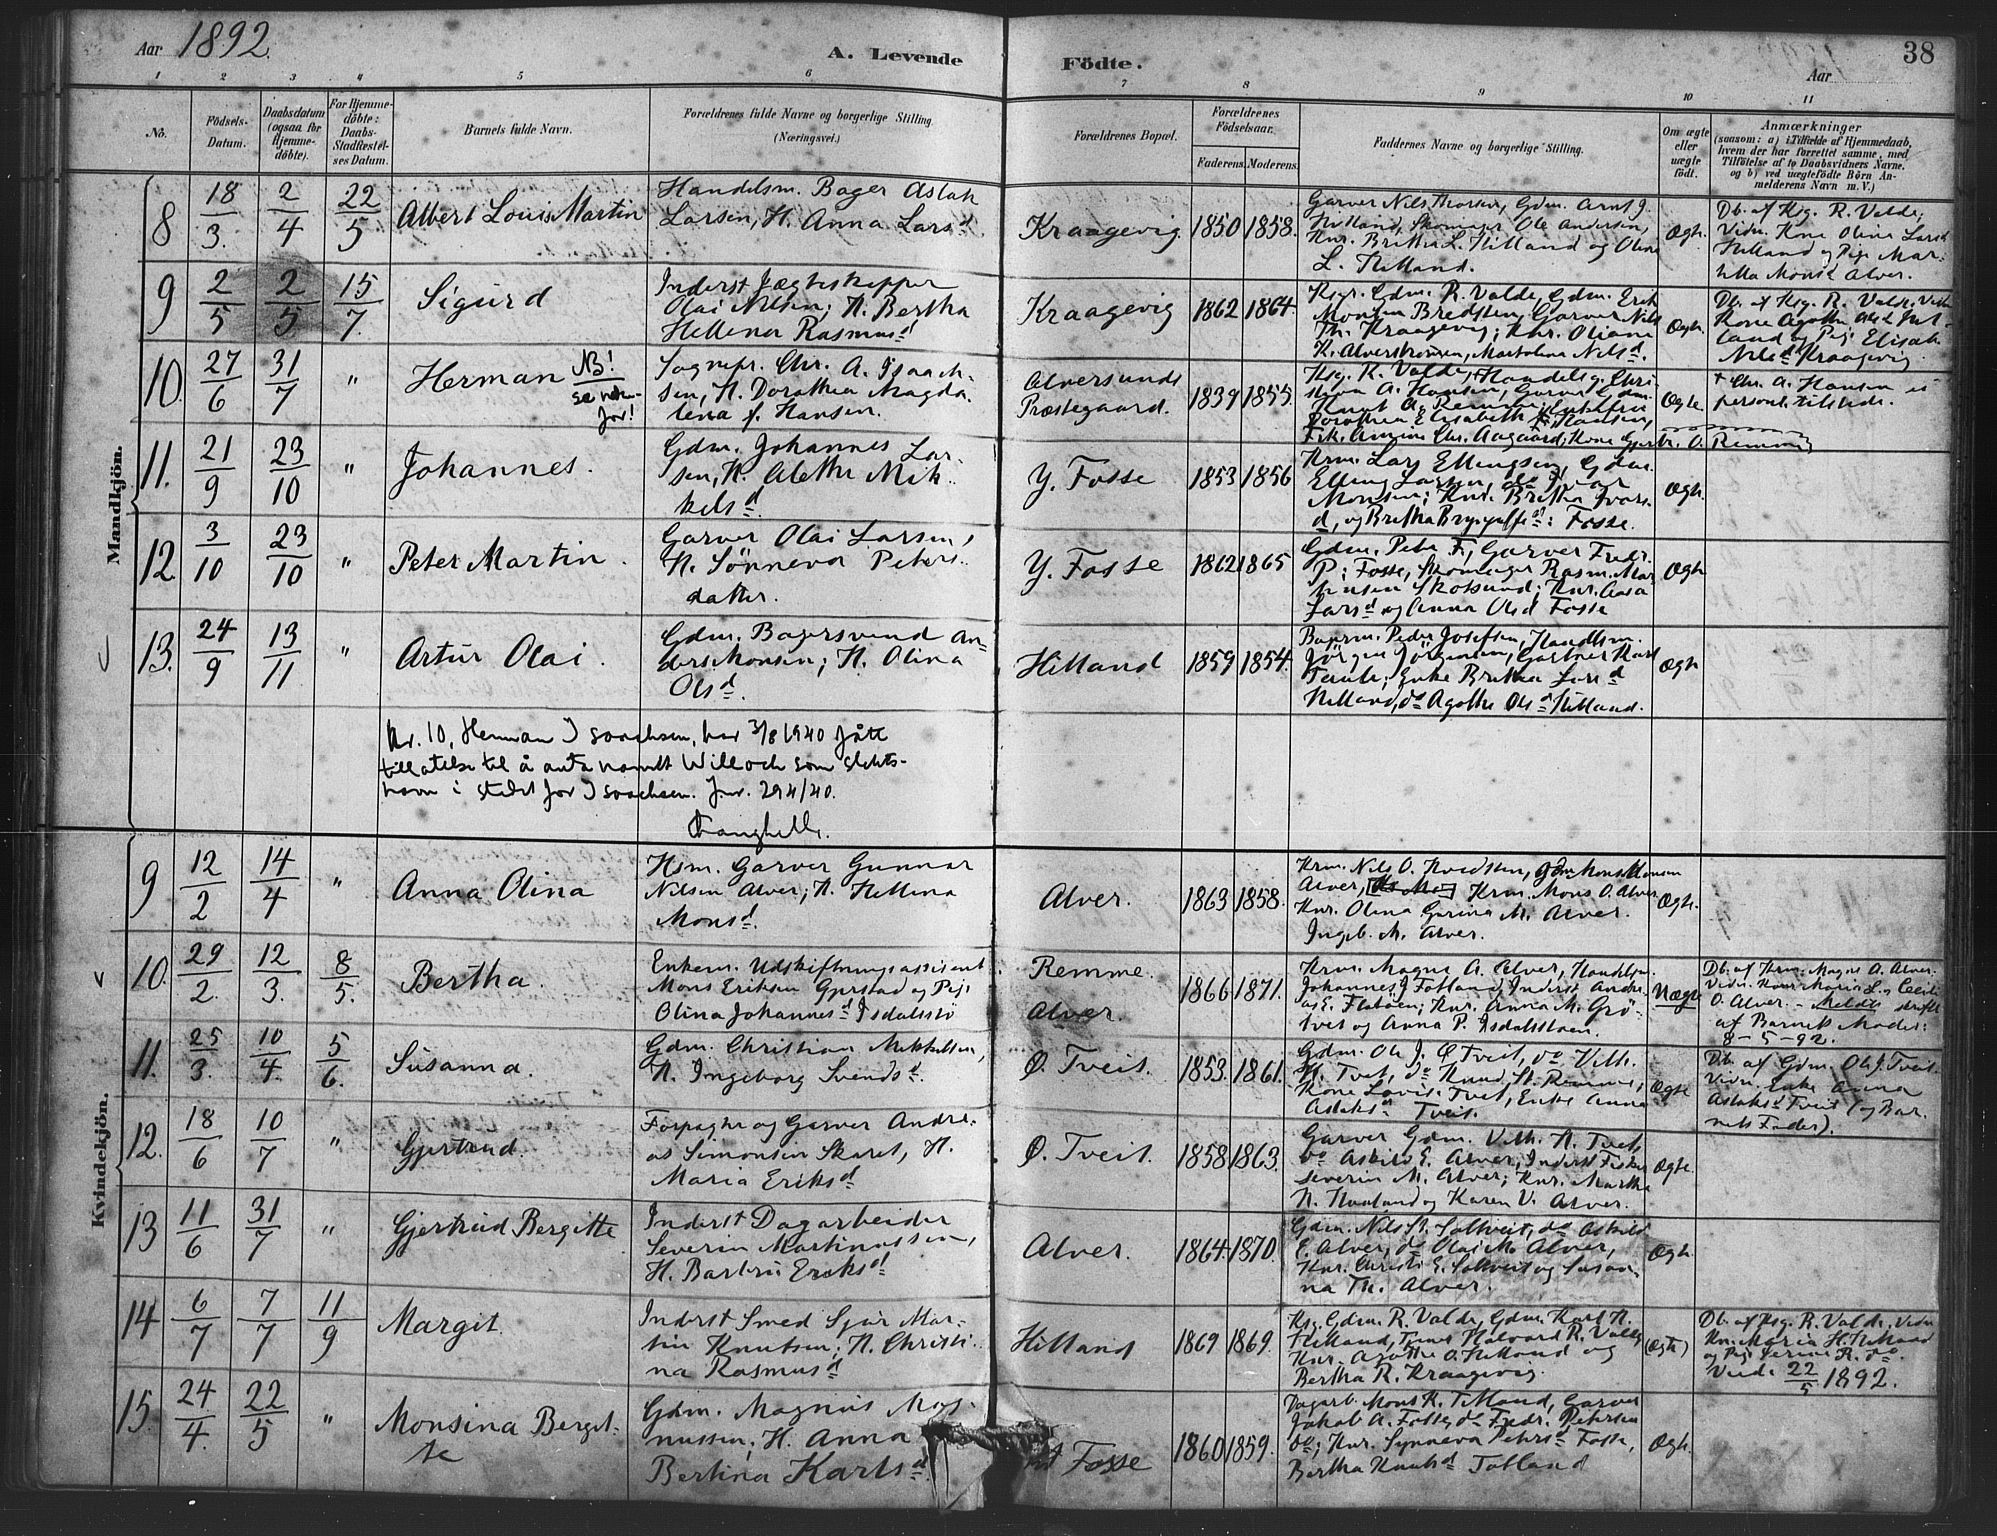 Aar 1892.
A. Levende Födte.
Aar
38
1 2 3 4 5 6 7 8 9 10 11
No.
Födsels-Datum.
Daabsdatum (ogsaa for Hjemme-döbte).
For Hjemme-döbte: Daabs-Stadfæstel-ses Datum.
Barnets fulde Navn.
Forældrenes fulde Navne og borgerlige Stilling. (Næringsvei.)
Forældrenes Bopæl.
Forældrenes Födselsaar.
Faderens. Moderens.
Faddernes Navne og borgerlige Stilling.
Om ægte eller uægte födt.
Anmærkninger
(saasom: a) i Tilfælde af Hjemmedaab,
hvem der har forrettet samme, med
Tilföielse af to Daabsvidners Navne.
og b) ved uægtefödte Börn An-
melderens Navn m. V.)
Mandkjön.
8 18/3. 2/4 22/5 Albert Louis Martin
Handelsm. Bager Aslak
Larsen, H. Anna Larsd.
Kraagevig. 1850 1858.
Garver Nils Thorsen, Gdm. Arnt J.
Hilland, Skomager Ole Andersen,
Knr. Britha L. Hilland og Oline
L. Hilland.
Ægte.
Db. af Ksg. R. Valde,
Vidn. Kone Olina Larsd.
Hilland og Pige Mar-
tha Monsd. Alver.
9 2/5 2/5 15/7. Sigurd
Inderst Jægteskipper
Olai Nilsen; H. Bertha
Hellena Rasmusd.
Kraagevig 1862 1864.
Ksgr. Gdm. R. Valde, Gdm. Erik
Monsen Bredsten, Garver Nils
Th. Kraagevig; Knr. Oliane
K. Alverstrømen, Nilsd.
Ægte.
Db. af Ksg. R. Valde, Vidn.
Kone Agathe Olsd. Hil-
land og Pig. Elisab.
Nilsd. Kraagevig.
10. 27/6 31/7 " Herman NB! se neden-for!
Sognepr. Chr. A. Isaach-
sen, H. Dorothea Magda-
lena f. Hansen.
Alversunds
Præstegaard. 1839 1855.
Ksg. R. Valde, Handelsg. Chri-
A. Hansen, Garver Gdm.
Knut O. Remme; Enkefru
Dorothea Elisabeth Hansen,
Frk. Amine Chr. Aagaard, Kone O. Remme
Ægte.
+ Chr. A. Hansen ei
personl. tilstede.
11. 21/9 23/10 " Johannes.
Gdm. Johannes Lar-
sen, H. Alethe Mik-
kelsd.
Y. Fosse 1853 1856
Krm. Lars Ellingsen, Gdm.
Elling Larsen, do Ivar
Monsen; Knr. Britha Ivars-
d., og Britha Fosse.
Ægte.
12. 3/10 23/10 " Peter Martin.
Garver Olai Larsen,
H. Sønneva Peters-
datter.
Y. Fosse 1862 1865
Gdm. Peter F., Garver Fredr.
P. Fosse, Skomager Rasm. Mar-
tinsen Skotsund; Knr. Aasa
Larsd. og Anna Olsd Fosse
Ægte
13. 24/9 13/11 " Artur Olai.
Gdm. Bagersvend An-
ders Monsen; H. Olina
Olsd.
Hilland 1859 1854.
Bagerm. Peder Josefsen, Handlsm.
Jörgen Jörgensen, Gartner Karl
; Enke Britha Larsd
Hilland, do Agathe Olsd Hilland.
Ægte
Nr. 10, Herman Isaachsen, har 3/8 1940 fått
tillatelse til å anta navnet Willoch som slekts-
navn i stedet for Isaachsen. Jnr. 294/40.
Kvindekjön.
9 12/2 14/4 " Anna Olina
Hsm. Garver Gunnar
Nilsen Alver; H. Hellena
Monsd.
Alver. 1863 1858.
Krm. Nils O. Kvedsten, Gdm Mons Monsen
Alver, Krm. Mons O. Alver
Knr. Olina Gurina M. Alver.
Ingeb. M. Alver.
Ægte.
10. 29/2. 12/3. 8/5. Bertha.
Enkem. Udskiftningsassistent
Mons Eriksen Gjerstad og Pige
Olina Johannesd Isdalstø
Remme.
Alver. 1866 1871.
Krm. Magne A. Alver, Handelsm.
Johannes J Fotland, Inderst Andre-
as E. Flatöen; Knr. Anna M. Grö-
tvet og Anna P. Isdalstöen.
Uægte
Db. af Krm. Magne A. Alver.
Vidn. Koner Maria L. og Cecilie
O. Alver. – Meldt skriftl.
af Barnets Moder:
8–5–92.
11. 25/3. 10/4. 5/6. Susanna.
Gdm. Christian Mikkelsen,
H. Ingeborg Svendsd.
Ø. Tveit. 1853. 1861.
Gdm. Ole J. Ø Tveit, do Vilh.
H. Tveit, do Knud St. Remme,
Kone Lovise Tveit, Enke Anna
Aslaksd. Tveit.
Ægte
Db. af Gdm. Ole J. Tveit.
Vidn. Enke Anna
Aslaksd Tveit (og Bar-
nets Fader).
12. 18/6 10/7 " Gjertrud.
Forpagter og Garver Andre-
as Simonsen Skaret, H.
Maria Eriksd
Ø. Tveit. 1858. 1863.
Garver Gdm. Vilh. H. Tveit,
do Askild E. Alver, Inderst Fisker
Severin M. Alver; Knr. Martha
N. Havland og Karen V. Alver.
Ægte.
13 11/6 31/7 " Gjertrud Bergitte
Inderst Dagarbeider
Severin Martinussen,
H. Barbru Eriksd
Alver. 1864 1870.
Gdm. Nils St. Solhveit, do Askild
E. Alver, do Olai M. Alver,
Knr. Christi E. Solhveit og Susan-
na Th. Alver.
Ægte
14 6/7 7/7 11/9 Margit.
Inderst Smed Sjur Mar-
tin Knutsen; H. Christi-
na Rasmusd
Hilland 1869 1869.
Ksg. Gdm. R. Valde, Gdm. Karl N.
Hilland, Halvard R. Valde;
Knr. Agathe O. Hilland og
Bertha R. Kraagevig.
(Ægte)
Db. af Ksg. R. Valde, Vidn
Kn. Maria H. Hilland
og Pig. Serine R. do.
Viede 22/5 1892.
15. 24/4. 22/5 " Monsina Bergit-
te
Gdm. Magnus Mog-
nussen, H. Anna
Bertina Karlsd.
Fosse 1860 1859.
Dagarb. Mons K. Titland, Garver
Jakob A. Fosse, do Fredr. Petersen
do; Knr. Synneva Petersd. Fosse,
Bertha Knutsd Totland
Ægte.